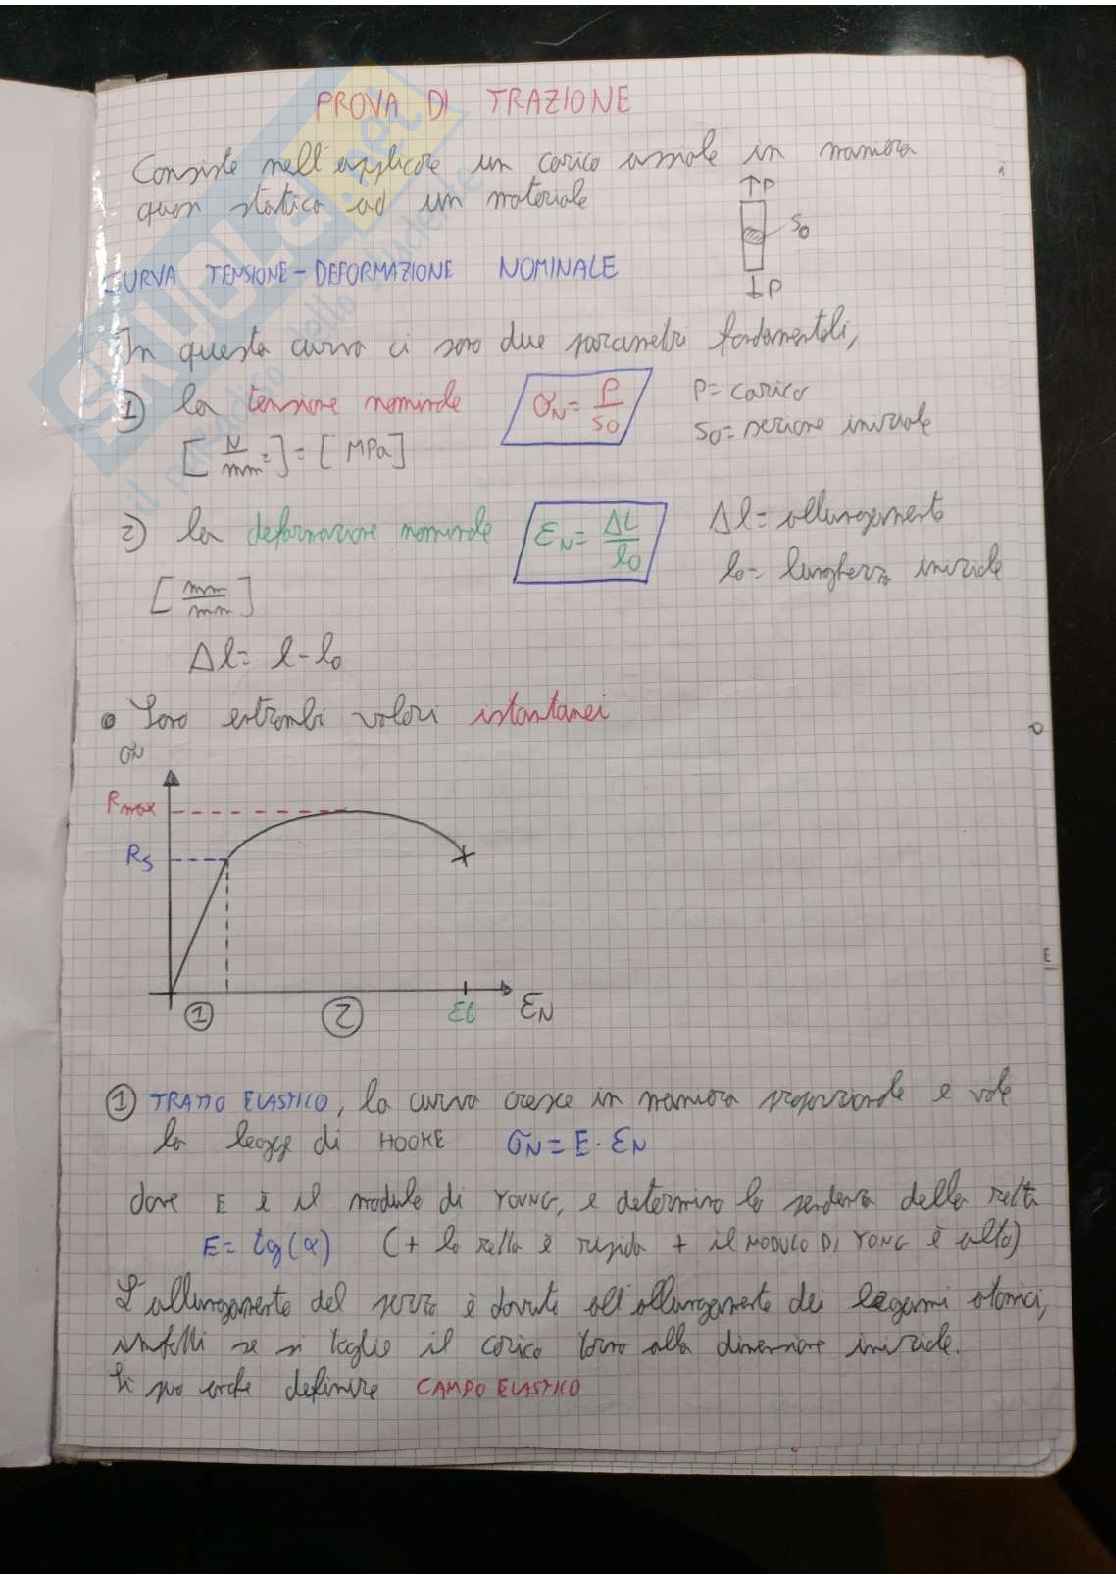 PROVA DI TRAZIONE
Consiste nell'applicare un carico assiale in maniera
quasi statica ad un materiale
↑P
S0
↓P
CURVA TENSIONE-DEFORMAZIONE NOMINALE
In questa curva ci sono due parametri fondamentali,
1) la tensione nominale σN = P/S0 P= carico
S0= sezione iniziale
[N/mm²] = [MPa]
2) la deformazione nominale εN = Δl/l0 Δl= allungamento
l0= lunghezza iniziale
[mm/mm]
Δl= l-l0
• Sono entrambi valori istantanei
σN
Rmax
Rs
① ② εN
① TRATTO ELASTICO, la curva cresce in maniera proporzionale e vale
la legge di HOOKE σN = E · εN
dove E è il modulo di YOUNG, e determina la pendenza della retta
E= tg(α) (+ la retta è ripida + il MODULO DI YONG è alto)
L'allungamento del pezzo è dovuto all'allungamento dei legami atomici,
infatti se si toglie il carico torna alla dimensione iniziale.
Si può anche definire CAMPO ELASTICO
SKUOLA.net
il paradiso dello studente